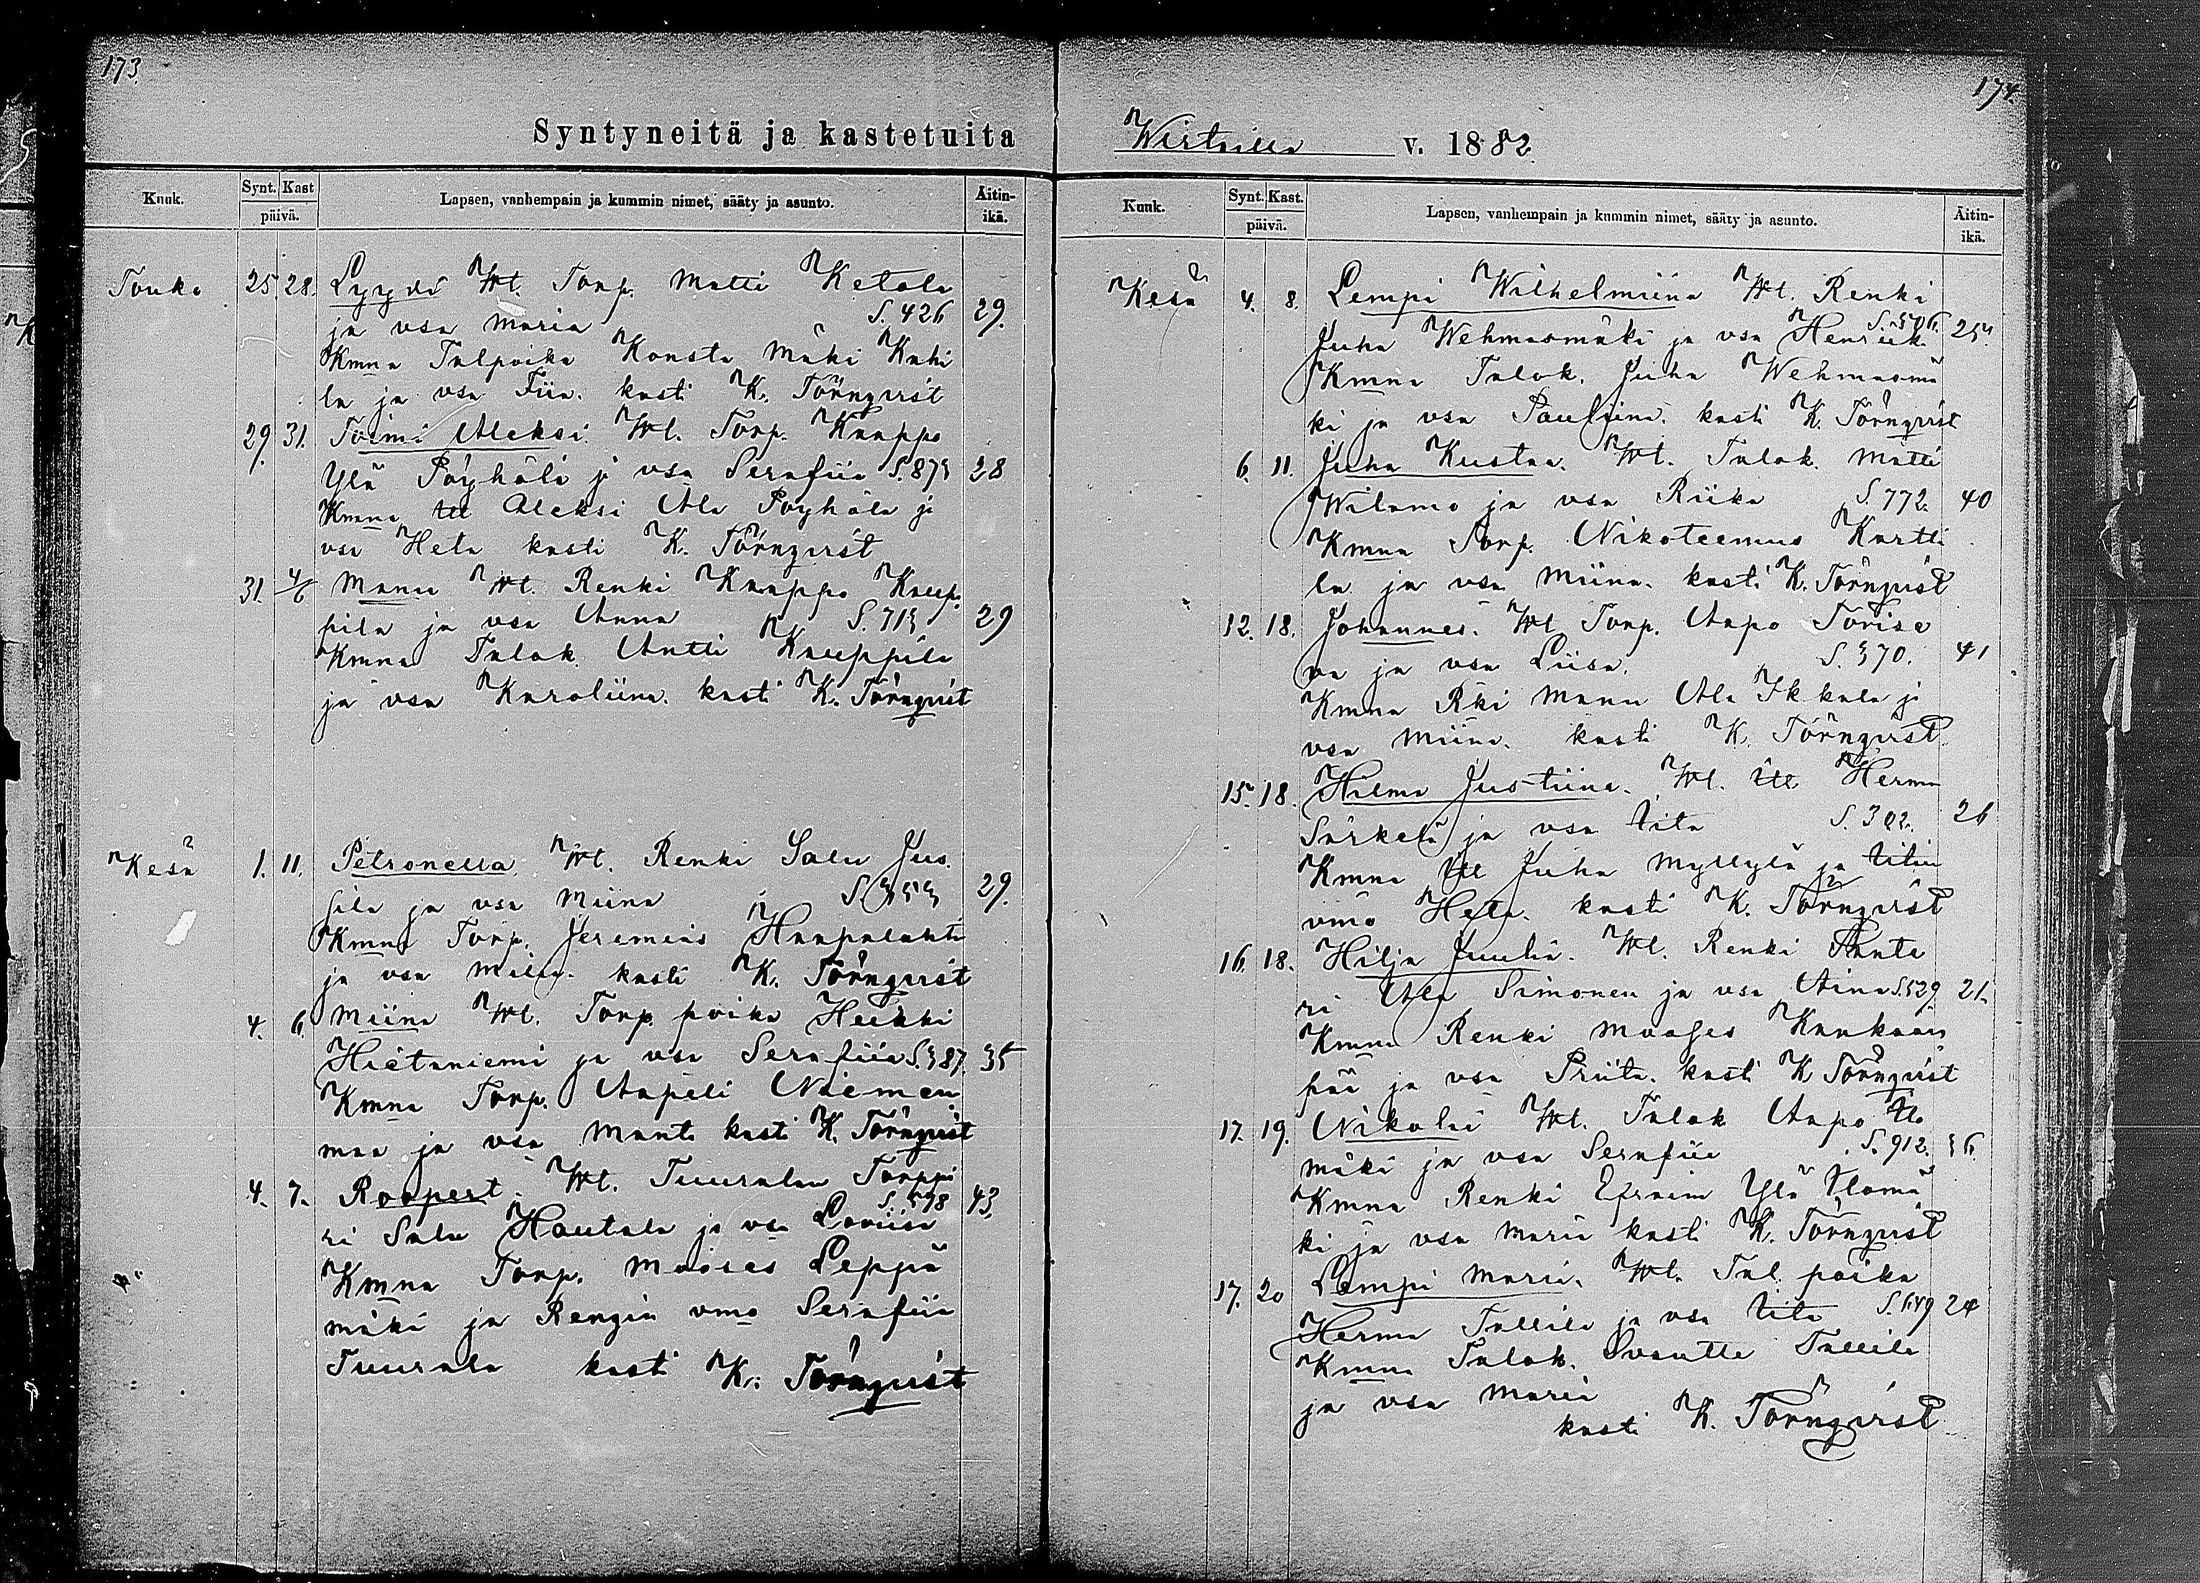 173
Syntyneitä ja kastetuita
Kuuk. Synt. Kast päivä. Lapsen, vanhempain ja kummin nimet, sääty ja asunto. Äitin-ikä.
Touko 25. 28. Lyydi Wt. Torp. Matti Ketola
ja vsa Maria S. 426 29.
Kmna Talpoika Konsta Mäki Kahi
la ja vsa Fiia. kasti K. Törnqvist
29. 31. Toimi Aleksi. Wt. Torp. Kaappo
Ylä Pöyhölä j vsa Serafiia S. 873 28
Kmna Itl Aleksi Ala Pöyhölä ja
vsa Heta kasti K. Törnqvist
31. 4/6 Manu Wt. Renki Kaappo Kaup.
pila ja vsa Anna S. 713 29
Kmna Talok. Antti Kauppila
ja vsa Karoliina. kasti K. Törnqvist
Kesä 1. 11. Petronella. Wt. Renki Salu Jus.
sila ja vsa Miina S. 353 29.
Kmna Torp. Jeremias Haapalahti
ja vsa Milia. kasti K. Törnqvist
4. 6. Miina Wt. Torp. poika Heikki
Hietaniemi ja vsa Serafiia S. 387. 35
Kmna Torp. Aapeli Niemen
maa ja vsa Manta kasti K. Törnqvist
4. 7. Roopert. Wt. Tuuralan Torppa
ri Salu Hautala ja vsa Loviisa S. 578 43.
Kmna Torp. Mooses Leppä
mäki ja Rengin vmo Serafiia
Tuurala kasti K. Törnqvist
174.
Wirtailla v. 1882.
Kuuk. Synt. Kast. päivä. Lapsen, vanhempain ja kummin nimet, sääty ja asunto. Äitin-ikä.
Kesä 4. 8. Lempi Wilhelmiina Wt. Renki
Juha Wehmasmäki ja vsa Henriik. 25
Kmna Talok. Juha Wehmasmä
ki ja vsa Pauliina. kasti K. Törnqvist
6. 11. Juha Kustaa. Wt. Talok. Matti
Wilamo ja vsa Riika S. 772. 40
Kmna Torp. Nikoteemus Kartti
la ja vsa Miina. kasti K. Törnqvist
12. 18. Johannes. Wt Torp. Aapo Torise
va ja vsa Liisa. S. 370. 41
Kmna Rki Manu Ala Ikkala ja
vsa Miina. kasti K. Törnqvist.
15. 18. Hilma Justiina. Wt. Itl Herma
Särkelä ja vsa Iita S. 302. 26
Kmna Itl Juha Myllylä ja Itlin
vmo Heta. kasti K. Törnqvist
16. 18. Hilja Juulia. Wt. Renki Santa
ri Ala Simonen ja vsa Aina S. 529. 21.
Kmna Renki Mooses Kankaan
pää ja vsa Priita. kasti K Törnqvist
17. 19. Nikolai Wt. Talok Aapo Ilo
mäki ja vsa Serafiia S. 912. 36.
Kmna Renki Efraim Ylä Ilomä
ki ja vsa Maria kasti K. Törnqvist
17. 20 Lempi Maria. Wt. Tal. poika
Herma Tallila ja vsa Iita 24
Kmna Talok. Svantte Tallila
ja vsa Maria
kasti K. Törnqvist